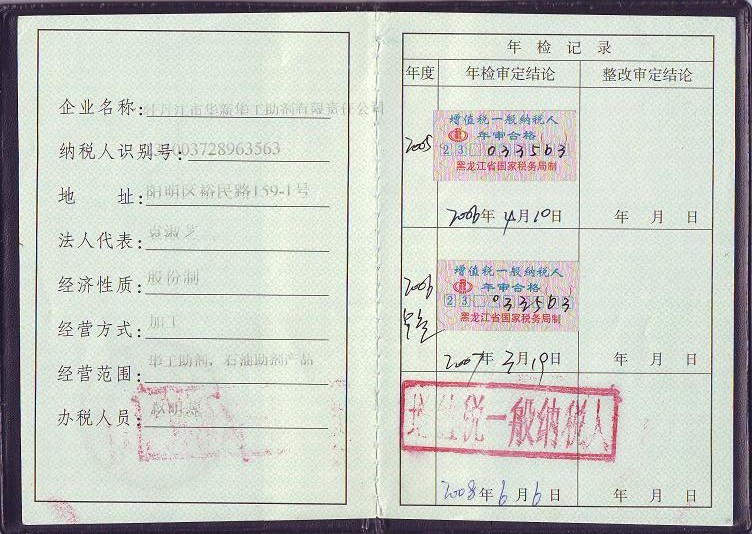 企业名称：牡丹江市华新华工助剂有限责任公司
纳税人识别号：003728963563
地 址：阳明区裕民路159-1号
法人代表：
经济性质：股份制
经营方式：加工
经营范围：华工助剂，石油助剂产品
办税人员：
年检记录
年度 年检审定结论 整改审定结论
2005
增值税一般纳税人
年审合格
23 033563
黑龙江省国家税务局制
2006年4月10日 年 月 日
2006
增值税一般纳税人
年审合格
23 033563
黑龙江省国家税务局制
2007年3月19日 年 月 日
增值税一般纳税人
2008年6月6日 年 月 日